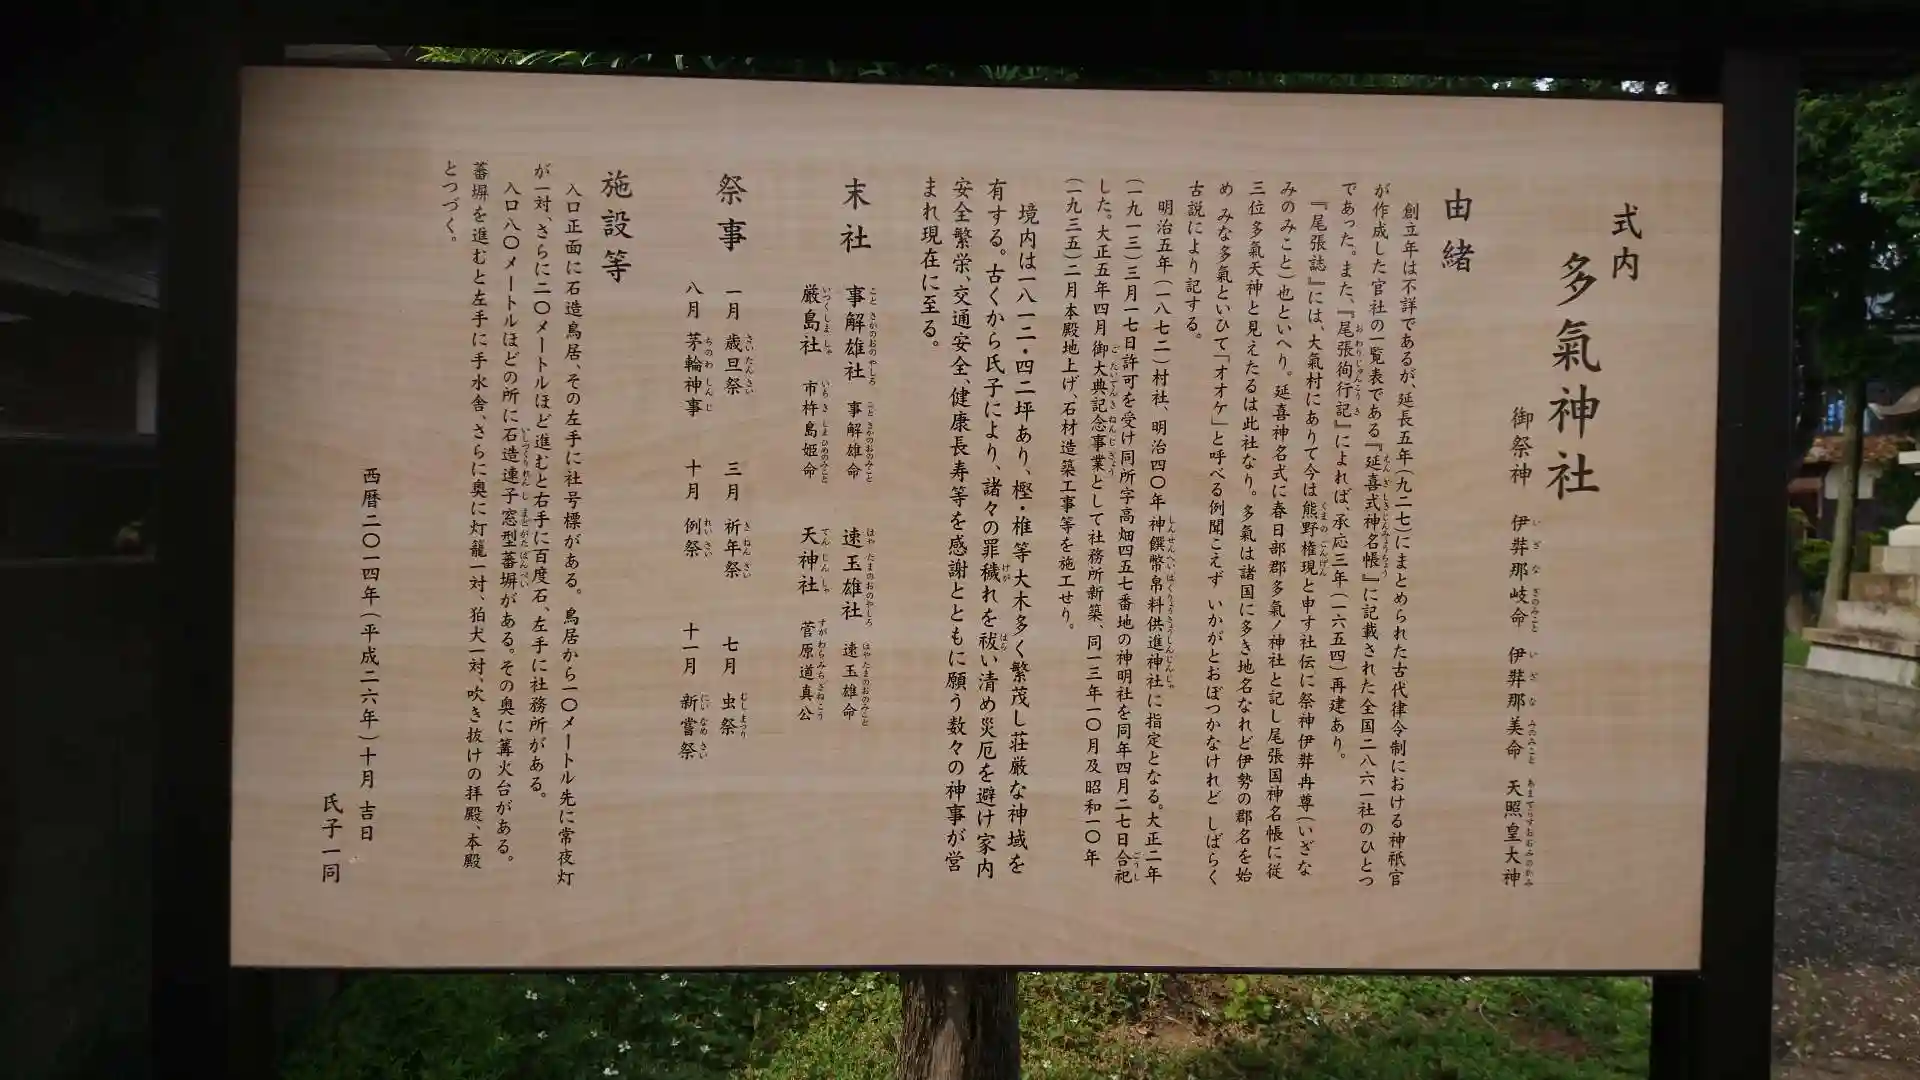 式内
多氣神社
御祭神　伊弉那岐命　伊弉那美命　天照皇大神
由緒
創立年は不詳であるが、延長五年（九二七）にまとめられた古代律令制における神祇官
が作成した官社の一覧表である『延喜式神名帳』に記載された全国二八六一社のひとつ
であった。また、『尾張徇行記』によれば、承応三年（一六五四）再建あり。
『尾張誌』には、大氣村にありて今は熊野権現と申す社伝に祭神伊弉冉尊（いざな
みのみこと）也といへり。延喜神名式に春日部郡多氣ノ神社と記し尾張国神名帳に従
三位多氣天神と見えたるは此社なり。多氣は諸国に多き地名なれど伊勢の郡名を始
め みな多氣といひて「オオケ」と呼べる例聞こえず いかがとおぼつかなけれど しばらく
古説により記する。
明治五年（一八七二）村社、明治四〇年 神饌幣帛料供進神社に指定となる。大正二年
（一九一三）三月一七日許可を受け同所字高畑四五七番地の神明社を同年四月二七日合祀
した。大正五年四月 御大典記念事業として社務所新築、同一三年一〇月及昭和一〇年
（一九三五）二月本殿地上げ、石材造築工事等を施工せり。
境内は一八一二・四二坪あり、樫・椎等大木多く繁茂し荘厳な神域を
有する。古くから氏子により、諸々の罪穢れを祓い清め災厄を避け家内
安全繁栄、交通安全、健康長寿等を感謝とともに願う数々の神事が営
まれ現在に至る。
末社
事解雄社　事解雄命　速玉雄社　速玉雄命
厳島社　市杵島姫命　天神社　菅原道真公
祭事
一月　歳旦祭　三月　祈年祭　七月　虫祭
八月　茅輪神事　十月　例祭　十一月　新嘗祭
施設等
入口正面に石造鳥居、その左手に社号標がある。鳥居から一〇メートル先に常夜灯
が一対、さらに二〇メートルほど進むと右手に百度石、左手に社務所がある。
入口八〇メートルほどの所に石造連子窓型蕃塀がある。その奥に篝火台がある。
蕃塀を進むと左手に手水舎、さらに奥に灯籠一対、狛犬一対、吹き抜けの拝殿、本殿
とつづく。
西暦二〇一四年（平成二六年）十月 吉日
氏子一同